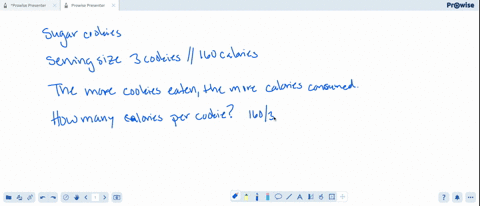 Prowise Presenter
Prowise Presenter
Prowise
Sugar cookies
Serving size 3 cookies // 160 calories
The more cookies eaten, the more calories consumed.
How many calories per cookie? 160/3